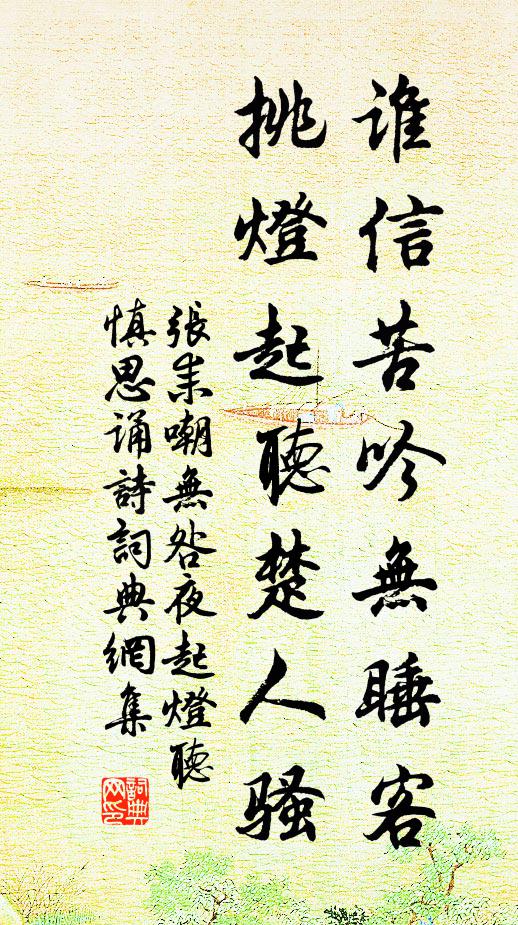 谁信苦吟無睡客
挑燈起聽楚人騷
張耒嘲無咎夜起燈聽
慎思诵詩詞典網集
詞典
网印